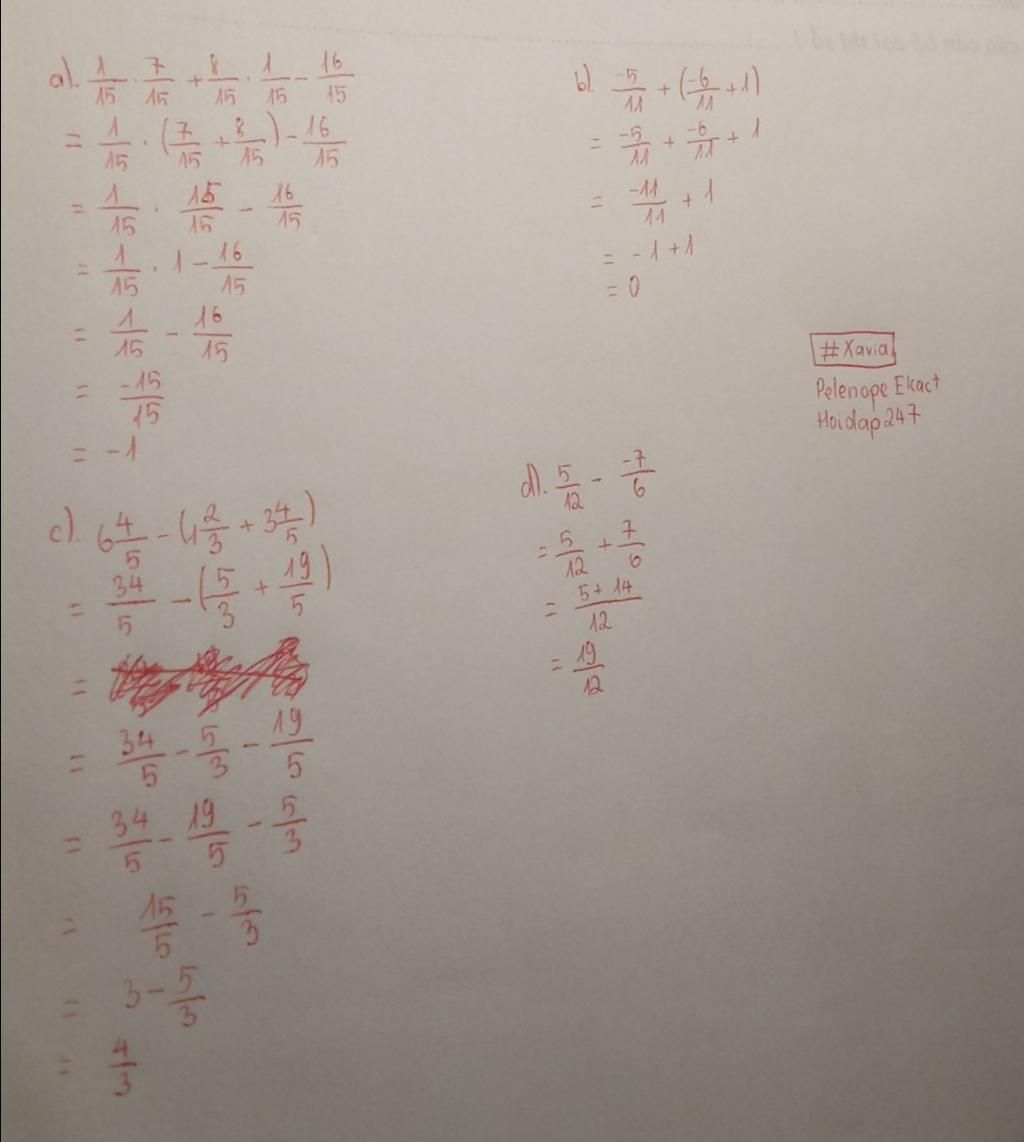 a). 1/15 . 7/15 + 8/15 . 1/15 - 16/15
= 1/15 . (7/15 + 8/15) - 16/15
= 1/15 . 15/15 - 16/15
= 1/15 . 1 - 16/15
= 1/15 - 16/15
= -15/15
= -1
b). -5/11 + (-6/11 + 1)
= -5/11 + -6/11 + 1
= -11/11 + 1
= -1 + 1
= 0
#Xavia
Pelenope Ekact
Hoidap247
c). 6 4/5 - (1 2/3 + 3 4/5)
= 34/5 - (5/3 + 19/5)
=
= 34/5 - 5/3 - 19/5
= 34/5 - 19/5 - 5/3
= 15/5 - 5/3
= 3 - 5/3
= 4/3
d). 5/12 - -7/6
= 5/12 + 7/6
= 5 + 14/12
= 19/12